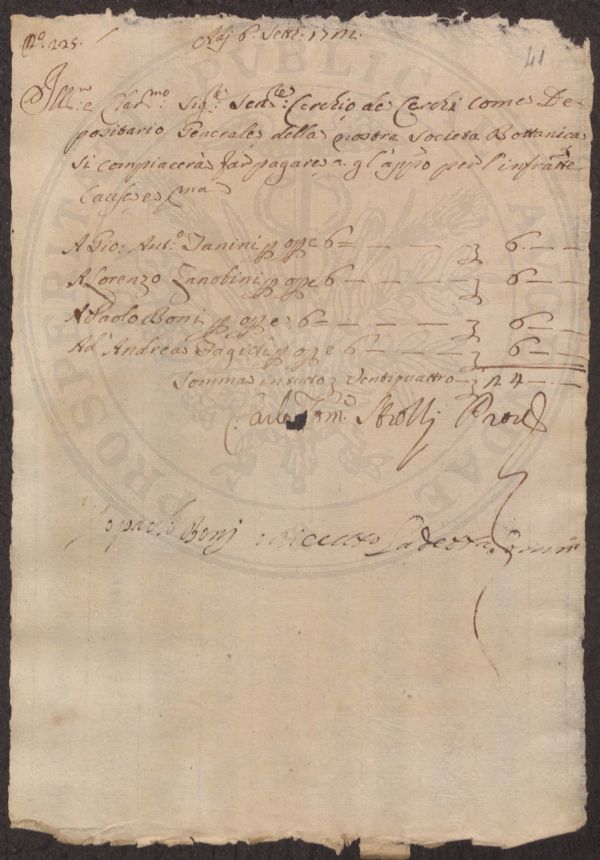 No. 225.
Adj 6. Settr. 1722.
41
Illm.o e Clar.mo Sig.re Sen.re Cerchio de Cerchi come De=
positario Generale della nostra Societa Bottanica
si compiacerà far pagare a gl'appo per l'infratte
Cause
A Gio: Ant.o Janini p opre 6 — — — 6 — —
A Lorenzo Zanobini p opre 6 — — — 6 — —
A Paolo Boni p opre 6 — — — 6 — —
Ad Andrea Fagidi p opre 6 — — — 6 — —
Somma in tutto Ventiquattro — 24 — —
Carlo Tom.o Strozzi Prov.e
Io paolo Bonj o riceuto la detta somma
PUBLIC
PROSPERITATI